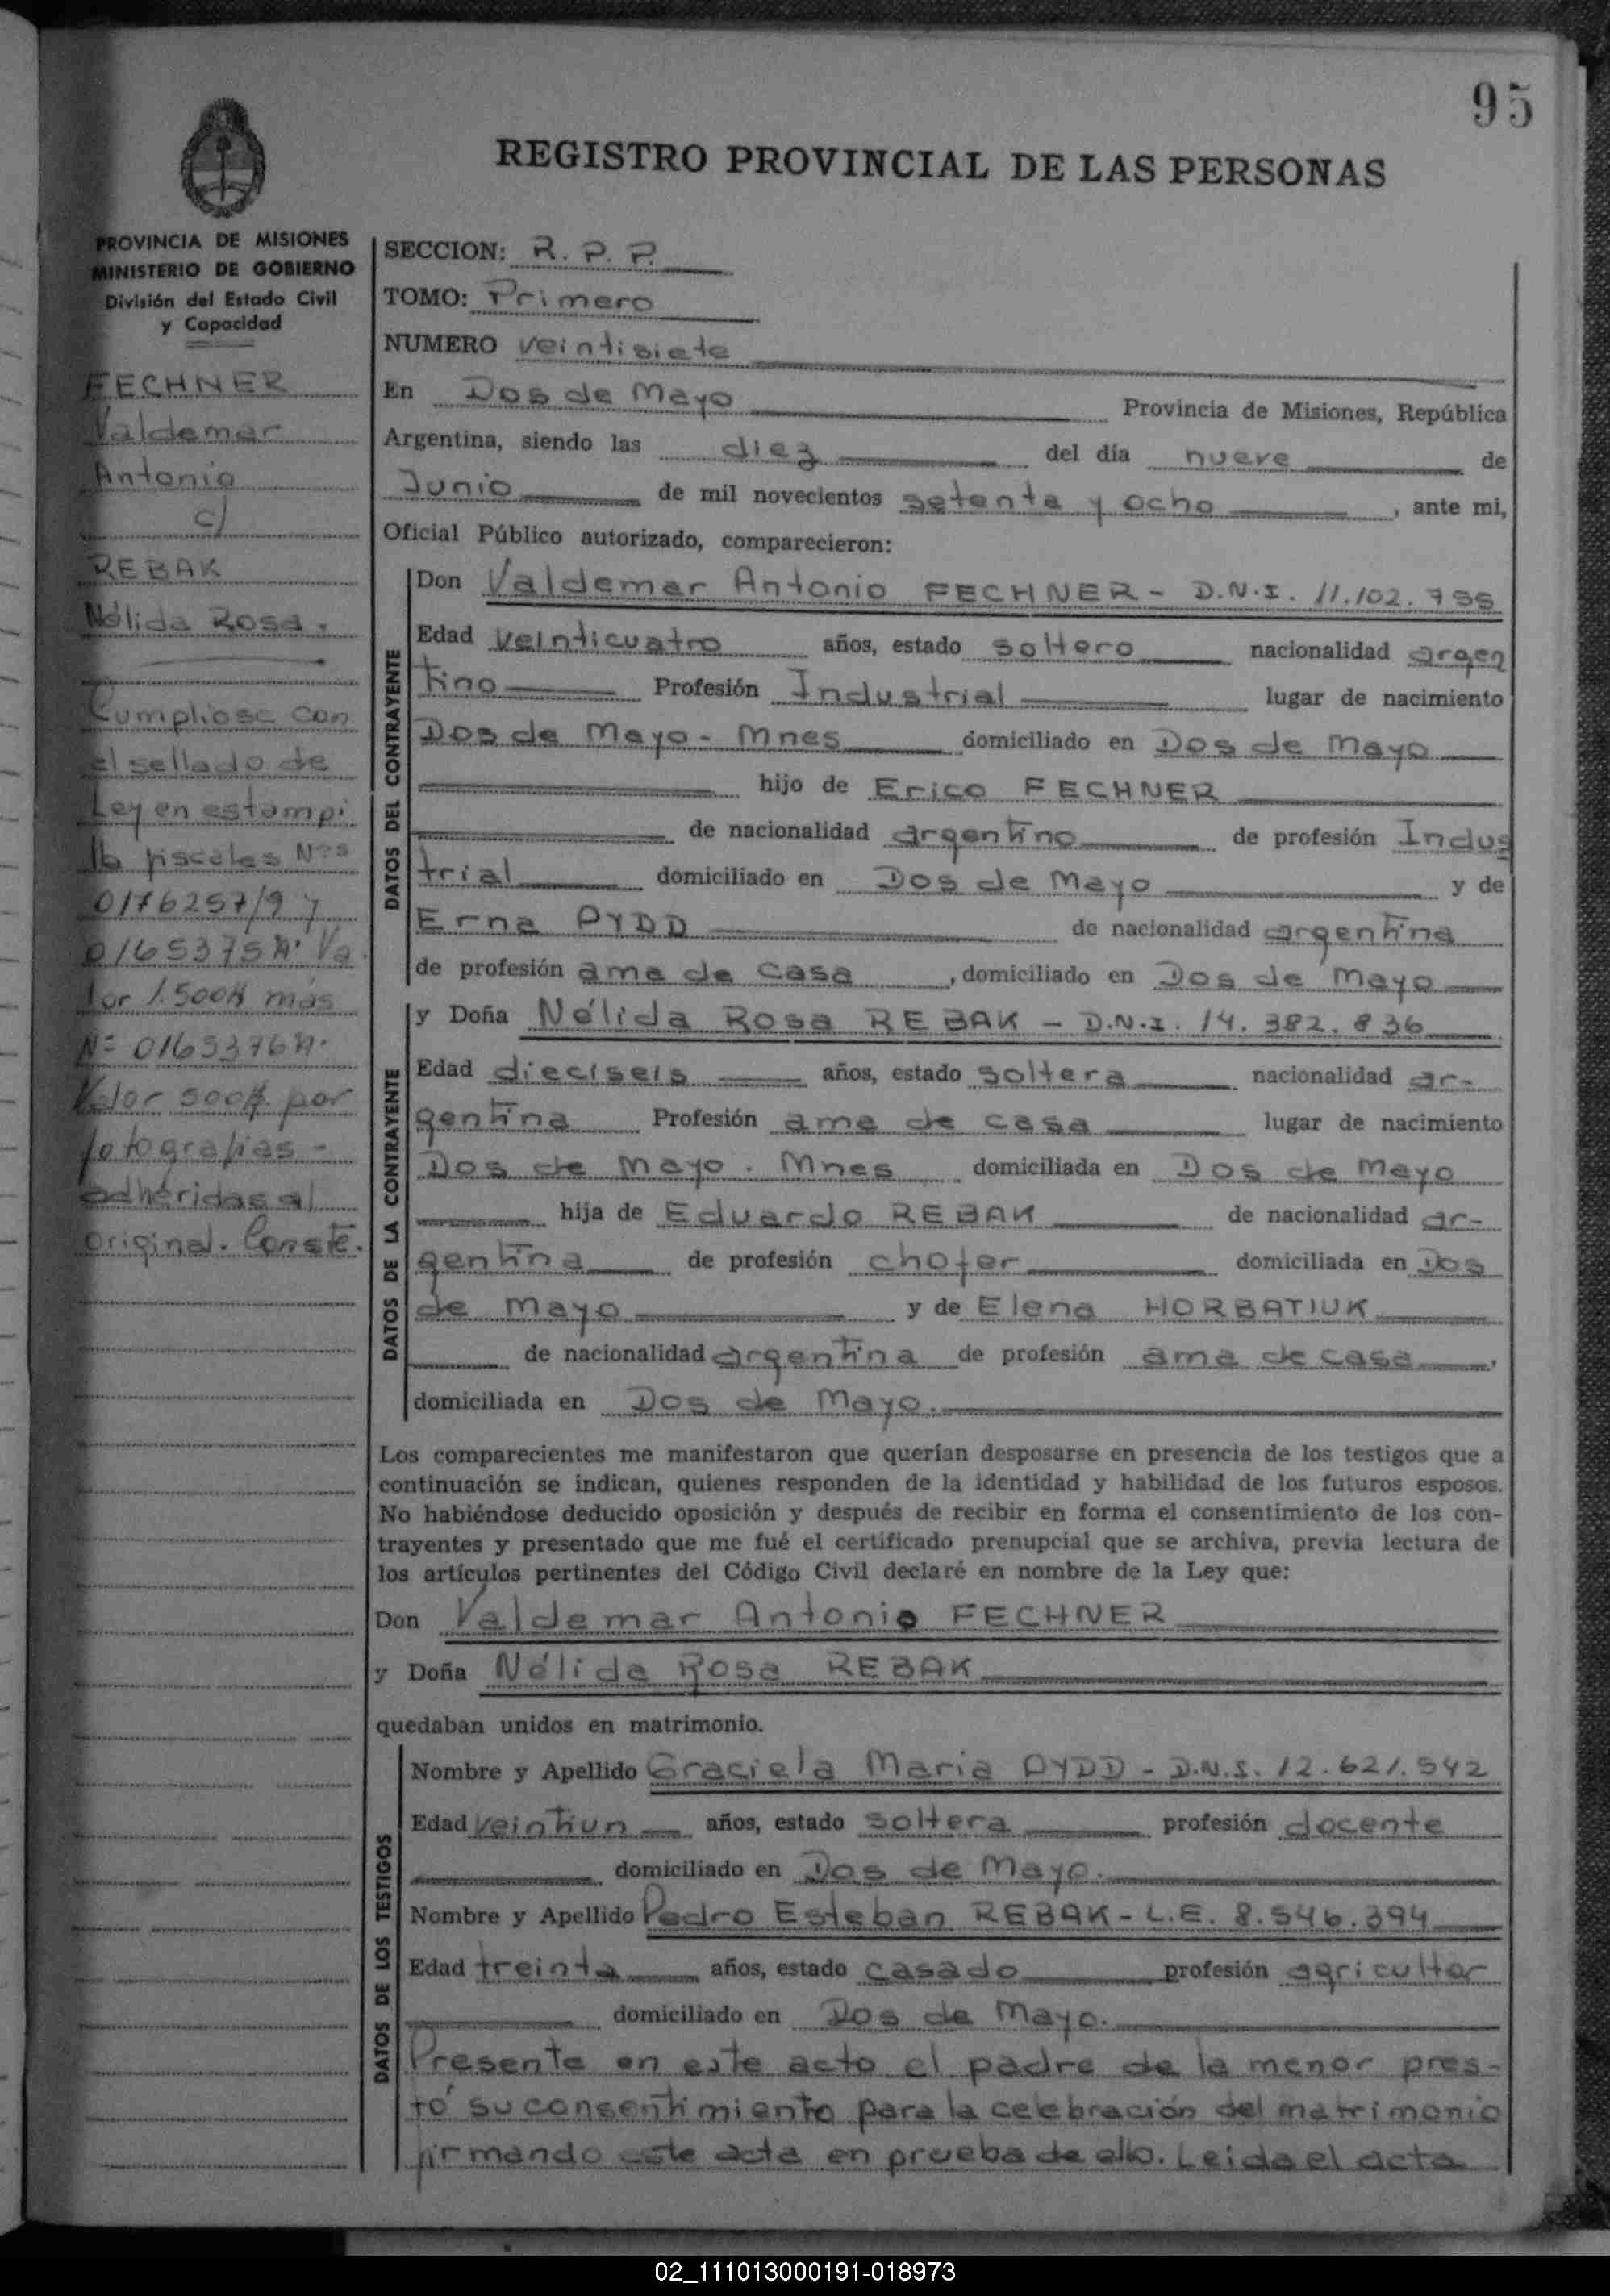 95
REGISTRO PROVINCIAL DE LAS PERSONAS
PROVINCIA DE MISIONES
MINISTERIO DE GOBIERNO
División del Estado Civil
y Capacidad
FECHNER
Valdemar
Antonio
c/
REBAK
Nélida Rosa.
Cumpliose con
el sellado de
Ley en estampi
lla fiscales Nºs
0176257/9 y
0165375A. Va
lor 1.500$ más
Nº 0165376A.
Valor 500$. por
fotografias -
adhéridas al
original. Conste.
SECCION: R. P. P.
TOMO: Primero
NUMERO veintisiete
En Dos de Mayo Provincia de Misiones, República
Argentina, siendo las diez del día nueve de
Junio de mil novecientos setenta y ocho, ante mi,
Oficial Público autorizado, comparecieron:
DATOS DEL CONTRAYENTE
Don Valdemar Antonio FECHNER - D.N.I. 11.102.
Edad veinticuatro años, estado soltero nacionalidad argen
tino Profesión Industrial lugar de nacimiento
Dos de Mayo - Mnes domiciliado en Dos de Mayo
hijo de Erico FECHNER
de nacionalidad argentino de profesión Indus
trial domiciliado en Dos de Mayo y de
Erna PYDD de nacionalidad argentina
de profesión ama de casa, domiciliado en Dos de Mayo
DATOS DE LA CONTRAYENTE
y Doña Nélida Rosa REBAK - D.N.I. 14.382.836
Edad dieciseis años, estado soltera nacionalidad ar-
gentina Profesión ama de casa lugar de nacimiento
Dos de Mayo. Mnes domiciliada en Dos de Mayo
hija de Eduardo REBAK de nacionalidad ar-
gentina de profesión chofer domiciliada en Dos
de Mayo y de Elena HORBATIUK
de nacionalidad argentina de profesión ama de casa,
domiciliada en Dos de Mayo.
Los comparecientes me manifestaron que querían desposarse en presencia de los testigos que a
continuación se indican, quienes responden de la identidad y habilidad de los futuros esposos.
No habiéndose deducido oposición y después de recibir en forma el consentimiento de los con-
trayentes y presentado que me fué el certificado prenupcial que se archiva, previa lectura de
los artículos pertinentes del Código Civil declaré en nombre de la Ley que:
Don Valdemar Antonio FECHNER
y Doña Nélida Rosa REBAK
quedaban unidos en matrimonio.
DATOS DE LOS TESTIGOS
Nombre y Apellido Graciela Maria PYDD - D.N.I. 12.621.542
Edad veintiun años, estado soltera profesión docente
domiciliado en Dos de Mayo.
Nombre y Apellido Pedro Esteban REBAK - L.E. 8.546.394
Edad treinta años, estado casado profesión agricultor
domiciliado en Dos de Mayo.
Presente en este acto el padre de la menor pres-
tó su consentimiento para la celebración del matrimonio
firmando este acta en prueba de ello. Leida el acta
02_111013000191-018973